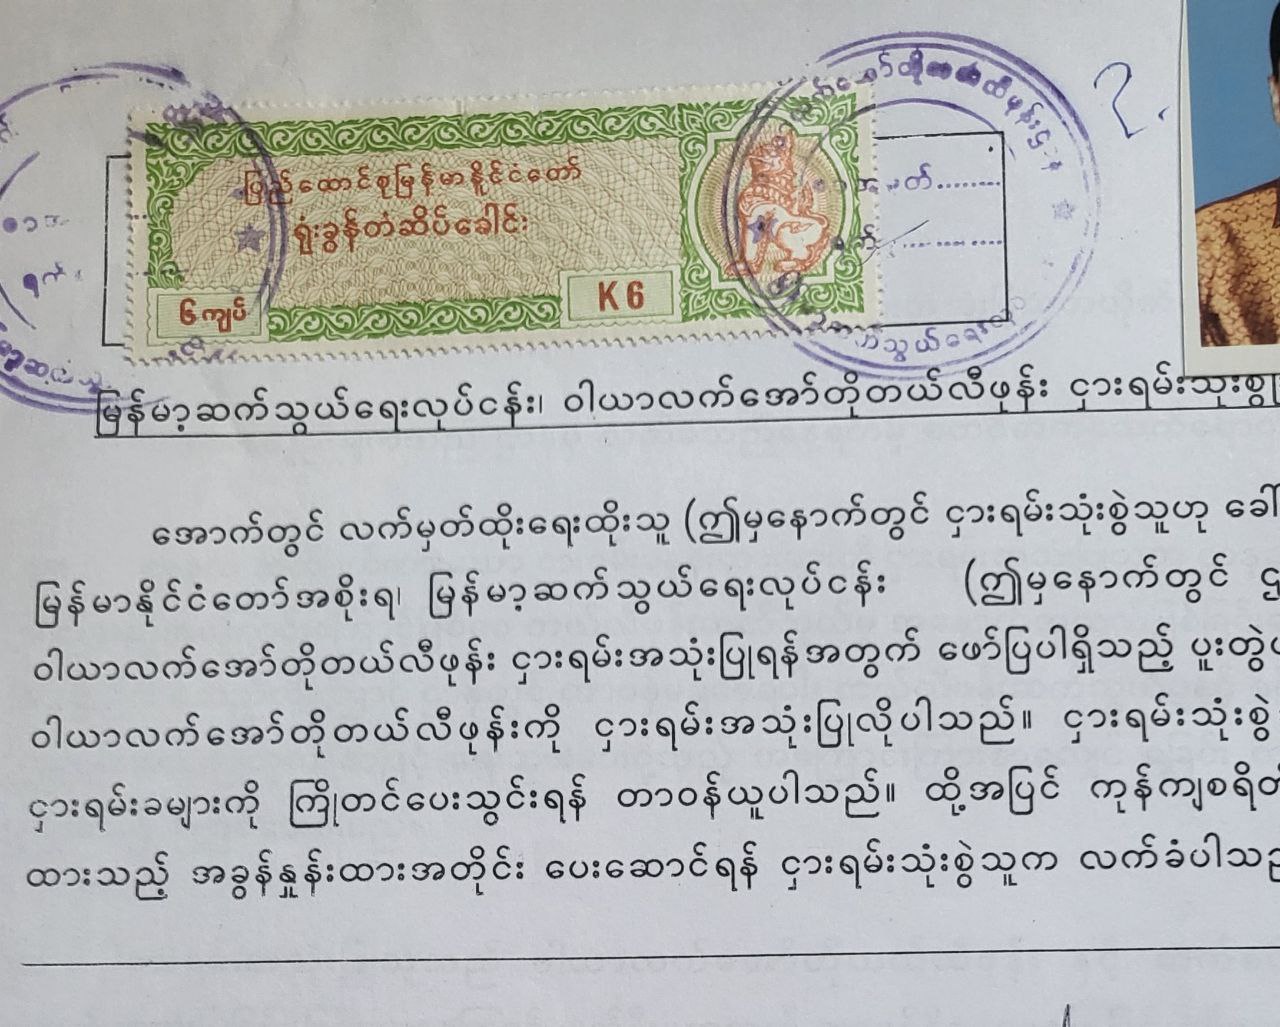 ပြည်ထောင်စုမြန်မာနိုင်ငံတော်
ရုံးခွန်တံဆိပ်ခေါင်း
၆ကျပ်
K 6
မြန်မာ့ဆက်သွယ်ရေးလုပ်ငန်း၊ ဝါယာလက်အော်တိုတယ်လီဖုန်း ငှားရမ်းသုံးစွဲ
အောက်တွင် လက်မှတ်ထိုးရေးထိုးသူ (ဤမှနောက်တွင် ငှားရမ်းသုံးစွဲသူဟု ခေါ်
မြန်မာနိုင်ငံတော်အစိုးရ၊ မြန်မာ့ဆက်သွယ်ရေးလုပ်ငန်း (ဤမှနောက်တွင် ဌ
ဝါယာလက်အော်တိုတယ်လီဖုန်း ငှားရမ်းအသုံးပြုရန်အတွက် ဖော်ပြပါရှိသည့် ပူးတွဲ
ဝါယာလက်အော်တိုတယ်လီဖုန်းကို ငှားရမ်းအသုံးပြုလိုပါသည်။ ငှားရမ်းသုံးစွဲ
ငှားရမ်းခများကို ကြိုတင်ပေးသွင်းရန် တာဝန်ယူပါသည်။ ထို့အပြင် ကုန်ကျစရိတ်
ထားသည့် အခွန်နှုန်းထားအတိုင်း ပေးဆောင်ရန် ငှားရမ်းသုံးစွဲသူက လက်ခံပါသည